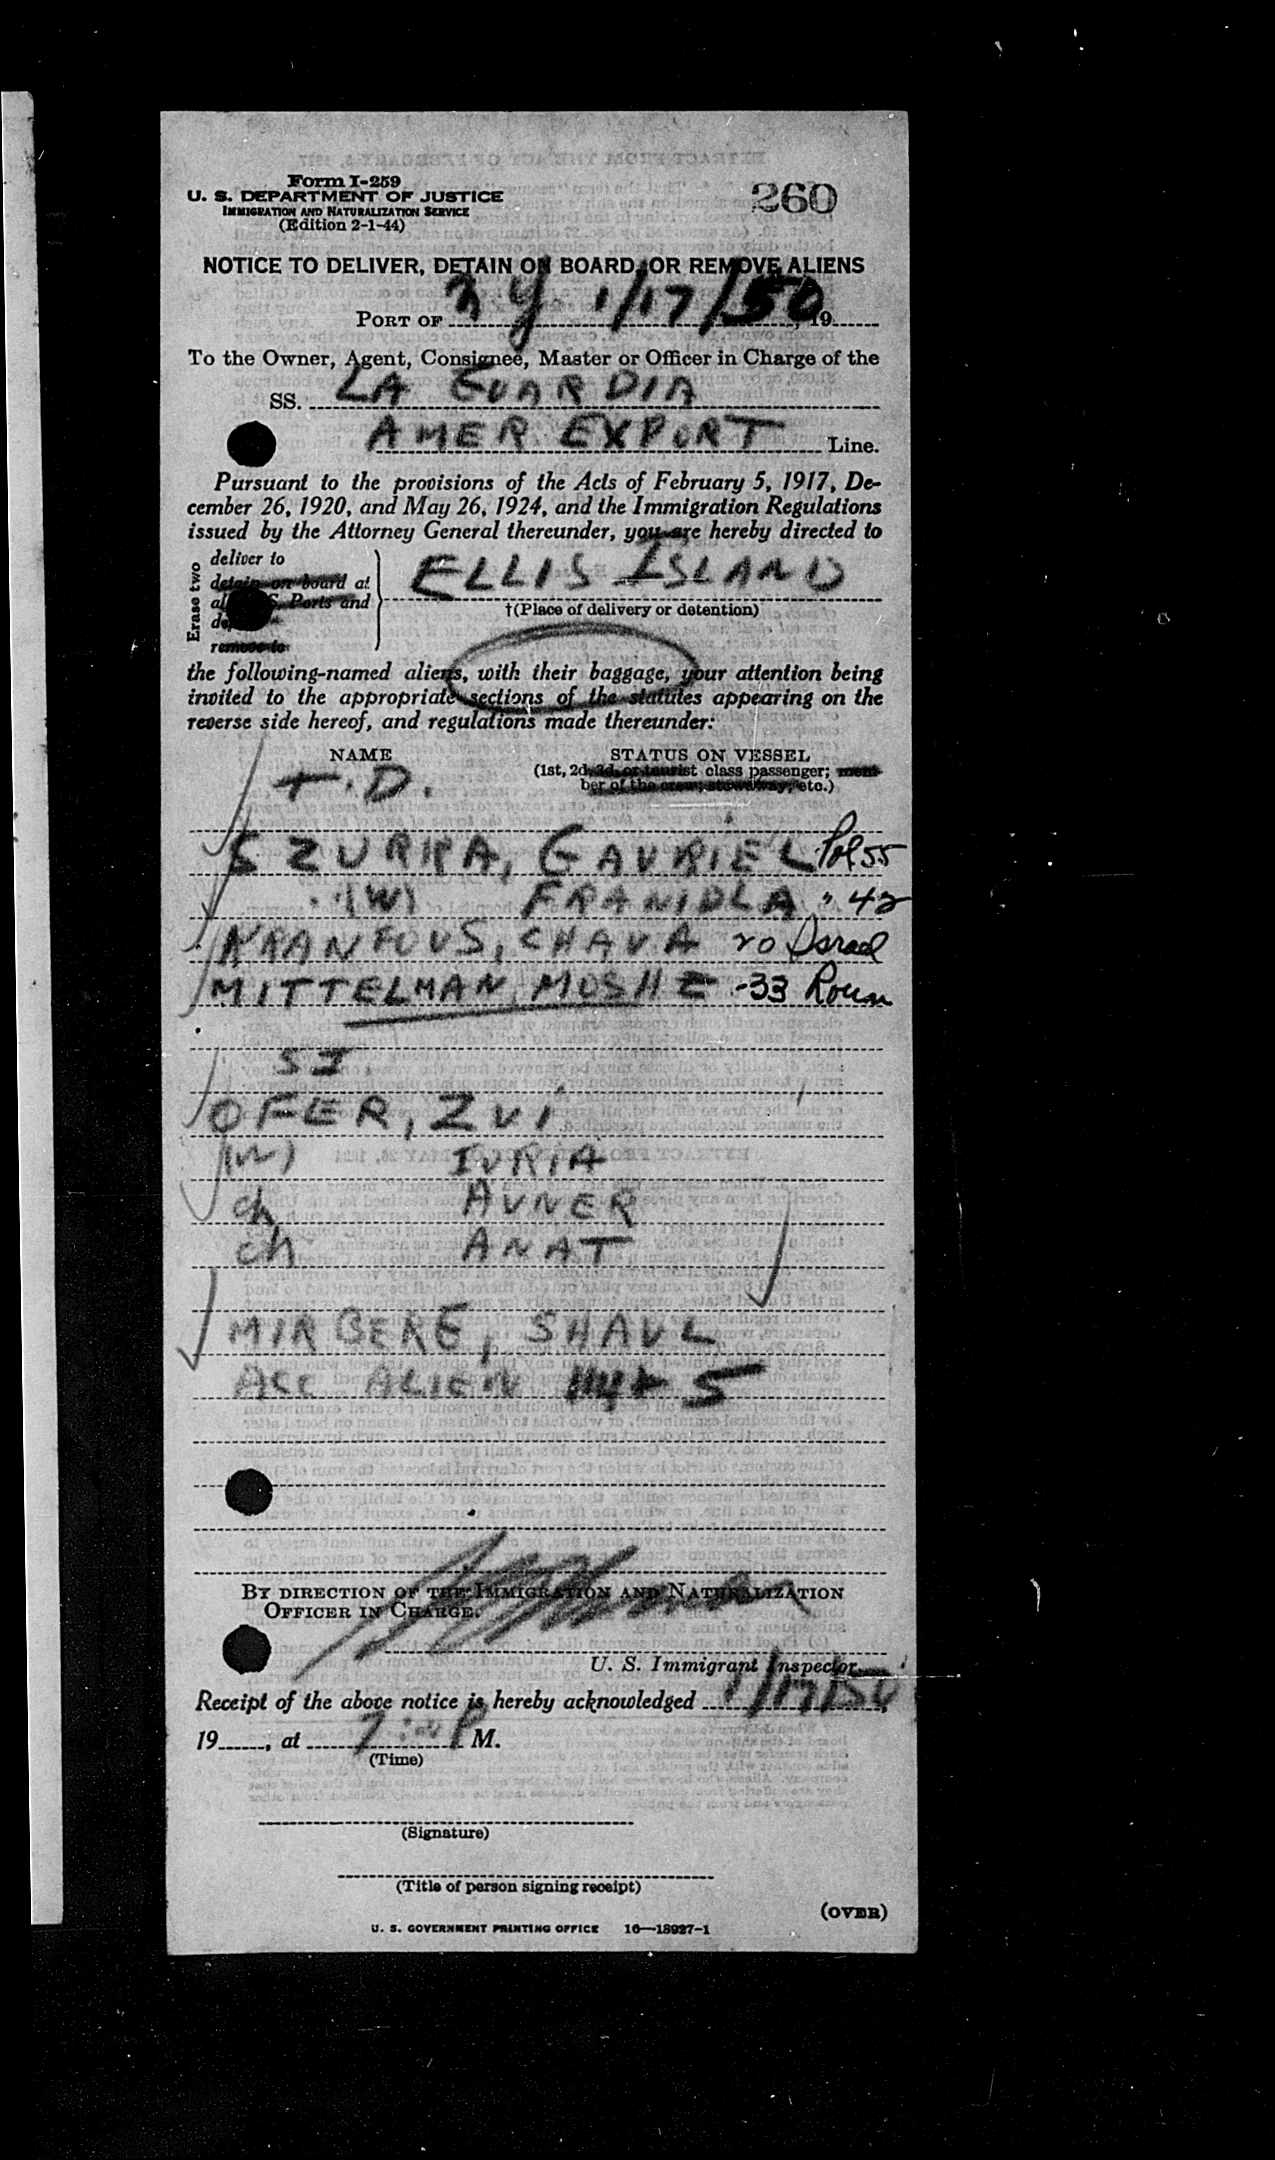 Form I-259
U. S. DEPARTMENT OF JUSTICE
IMMIGRATION AND NATURALIZATION SERVICE
(Edition 2-1-44)
260
NOTICE TO DELIVER, DETAIN ON BOARD, OR REMOVE ALIENS
PORT OF N Y 1/17/50, 19
To the Owner, Agent, Consignee, Master or Officer in Charge of the
SS. LA GUARDIA
AMER EXPORT Line.
Pursuant to the provisions of the Acts of February 5, 1917, De-
cember 26, 1920, and May 26, 1924, and the Immigration Regulations
issued by the Attorney General thereunder, you are hereby directed to
Erase two
deliver to
detain on board at
S. Ports and
remove to
ELLIS ISLAND
†(Place of delivery or detention)
the following-named aliens, with their baggage, your attention being
invited to the appropriate sections of the statutes appearing on the
reverse side hereof, and regulations made thereunder:
NAME
STATUS ON VESSEL
(1st, 2d, 3d, or tourist class passenger; mem-
ber of the crew; stowaway, etc.)
T.D.
SZURKA, GAVRIEL Pol 55
(W) " 42
CHAVA 20 Israel
MITTELMAN, MOSHE -33 Roum
SI
OFER, ZVI
(W) IVRIA
ch AVNER
ch ANAT
SHAUL
ALL ALIEN 5
BY DIRECTION OF THE IMMIGRATION AND NATURALIZATION
OFFICER IN CHARGE.
U. S. Immigrant Inspector.
Receipt of the above notice is hereby acknowledged 1/17/50,
19, at 7: P M.
(Time)
(Signature)
(Title of person signing receipt)
(OVER)
U. S. GOVERNMENT PRINTING OFFICE 16—18927-1